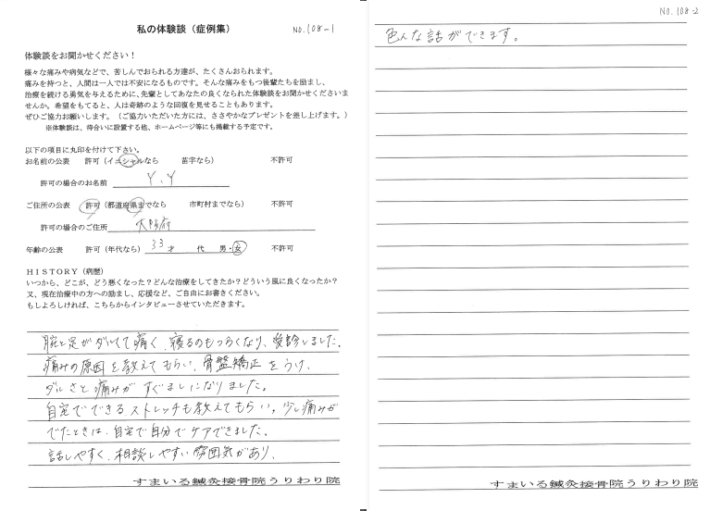 私の体験談（症例集）
NO.108-1
体験談をお聞かせください！
様々な痛みや病気などで、苦しんでおられる方達が、たくさんおられます。
痛みを持つと、人間は一人では不安になるものです。そんな痛みをもつ後輩たちを励まし、
治療を続ける勇気を与えるために、先輩としてあなたの良くなられた体験談をお聞かせくださいま
せんか。希望をもてると、人は奇跡のような回復を見せることもあります。
ぜひご協力お願いします。（ご協力いただいた方には、ささやかなプレゼントを差し上げます。）
※体験談は、待合いに設置する他、ホームページ等にも掲載する予定です。
以下の項目に丸印を付けて下さい。
お名前の公表　許可（イニシャルなら　苗字なら）　不許可
許可の場合のお名前　Y.Y
ご住所の公表　許可（都道府県までなら　市町村までなら）　不許可
許可の場合のご住所　大阪府
年齢の公表　許可（年代なら）　33才　代　男・女　不許可
HISTORY（病歴）
いつから、どこが、どう悪くなった？どんな治療をしてきたか？どういう風に良くなったか？
又、現在治療中の方への励まし、応援など、ご自由にお書きください。
もしよろしければ、こちらからインタビューさせていただきます。
腕と足がダルくて痛く、寝るのもつらくなり、受診しました。
痛みの原因を教えてもらい、骨盤矯正をうけ、
ダルさと痛みがすぐましになりました。
自宅でできるストレッチも教えてもらい、少し痛みが
でたときは、自宅で自分でケアできました。
話しやすく、相談しやすい雰囲気があり、
すまいる鍼灸接骨院うりわり院
NO.108-2
色んな話ができます。
すまいる鍼灸接骨院うりわり院